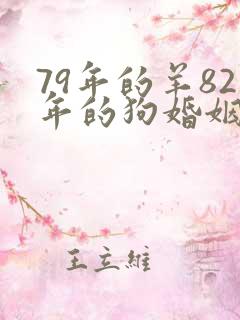 79年的羊82
年的狗婚姻
王立維